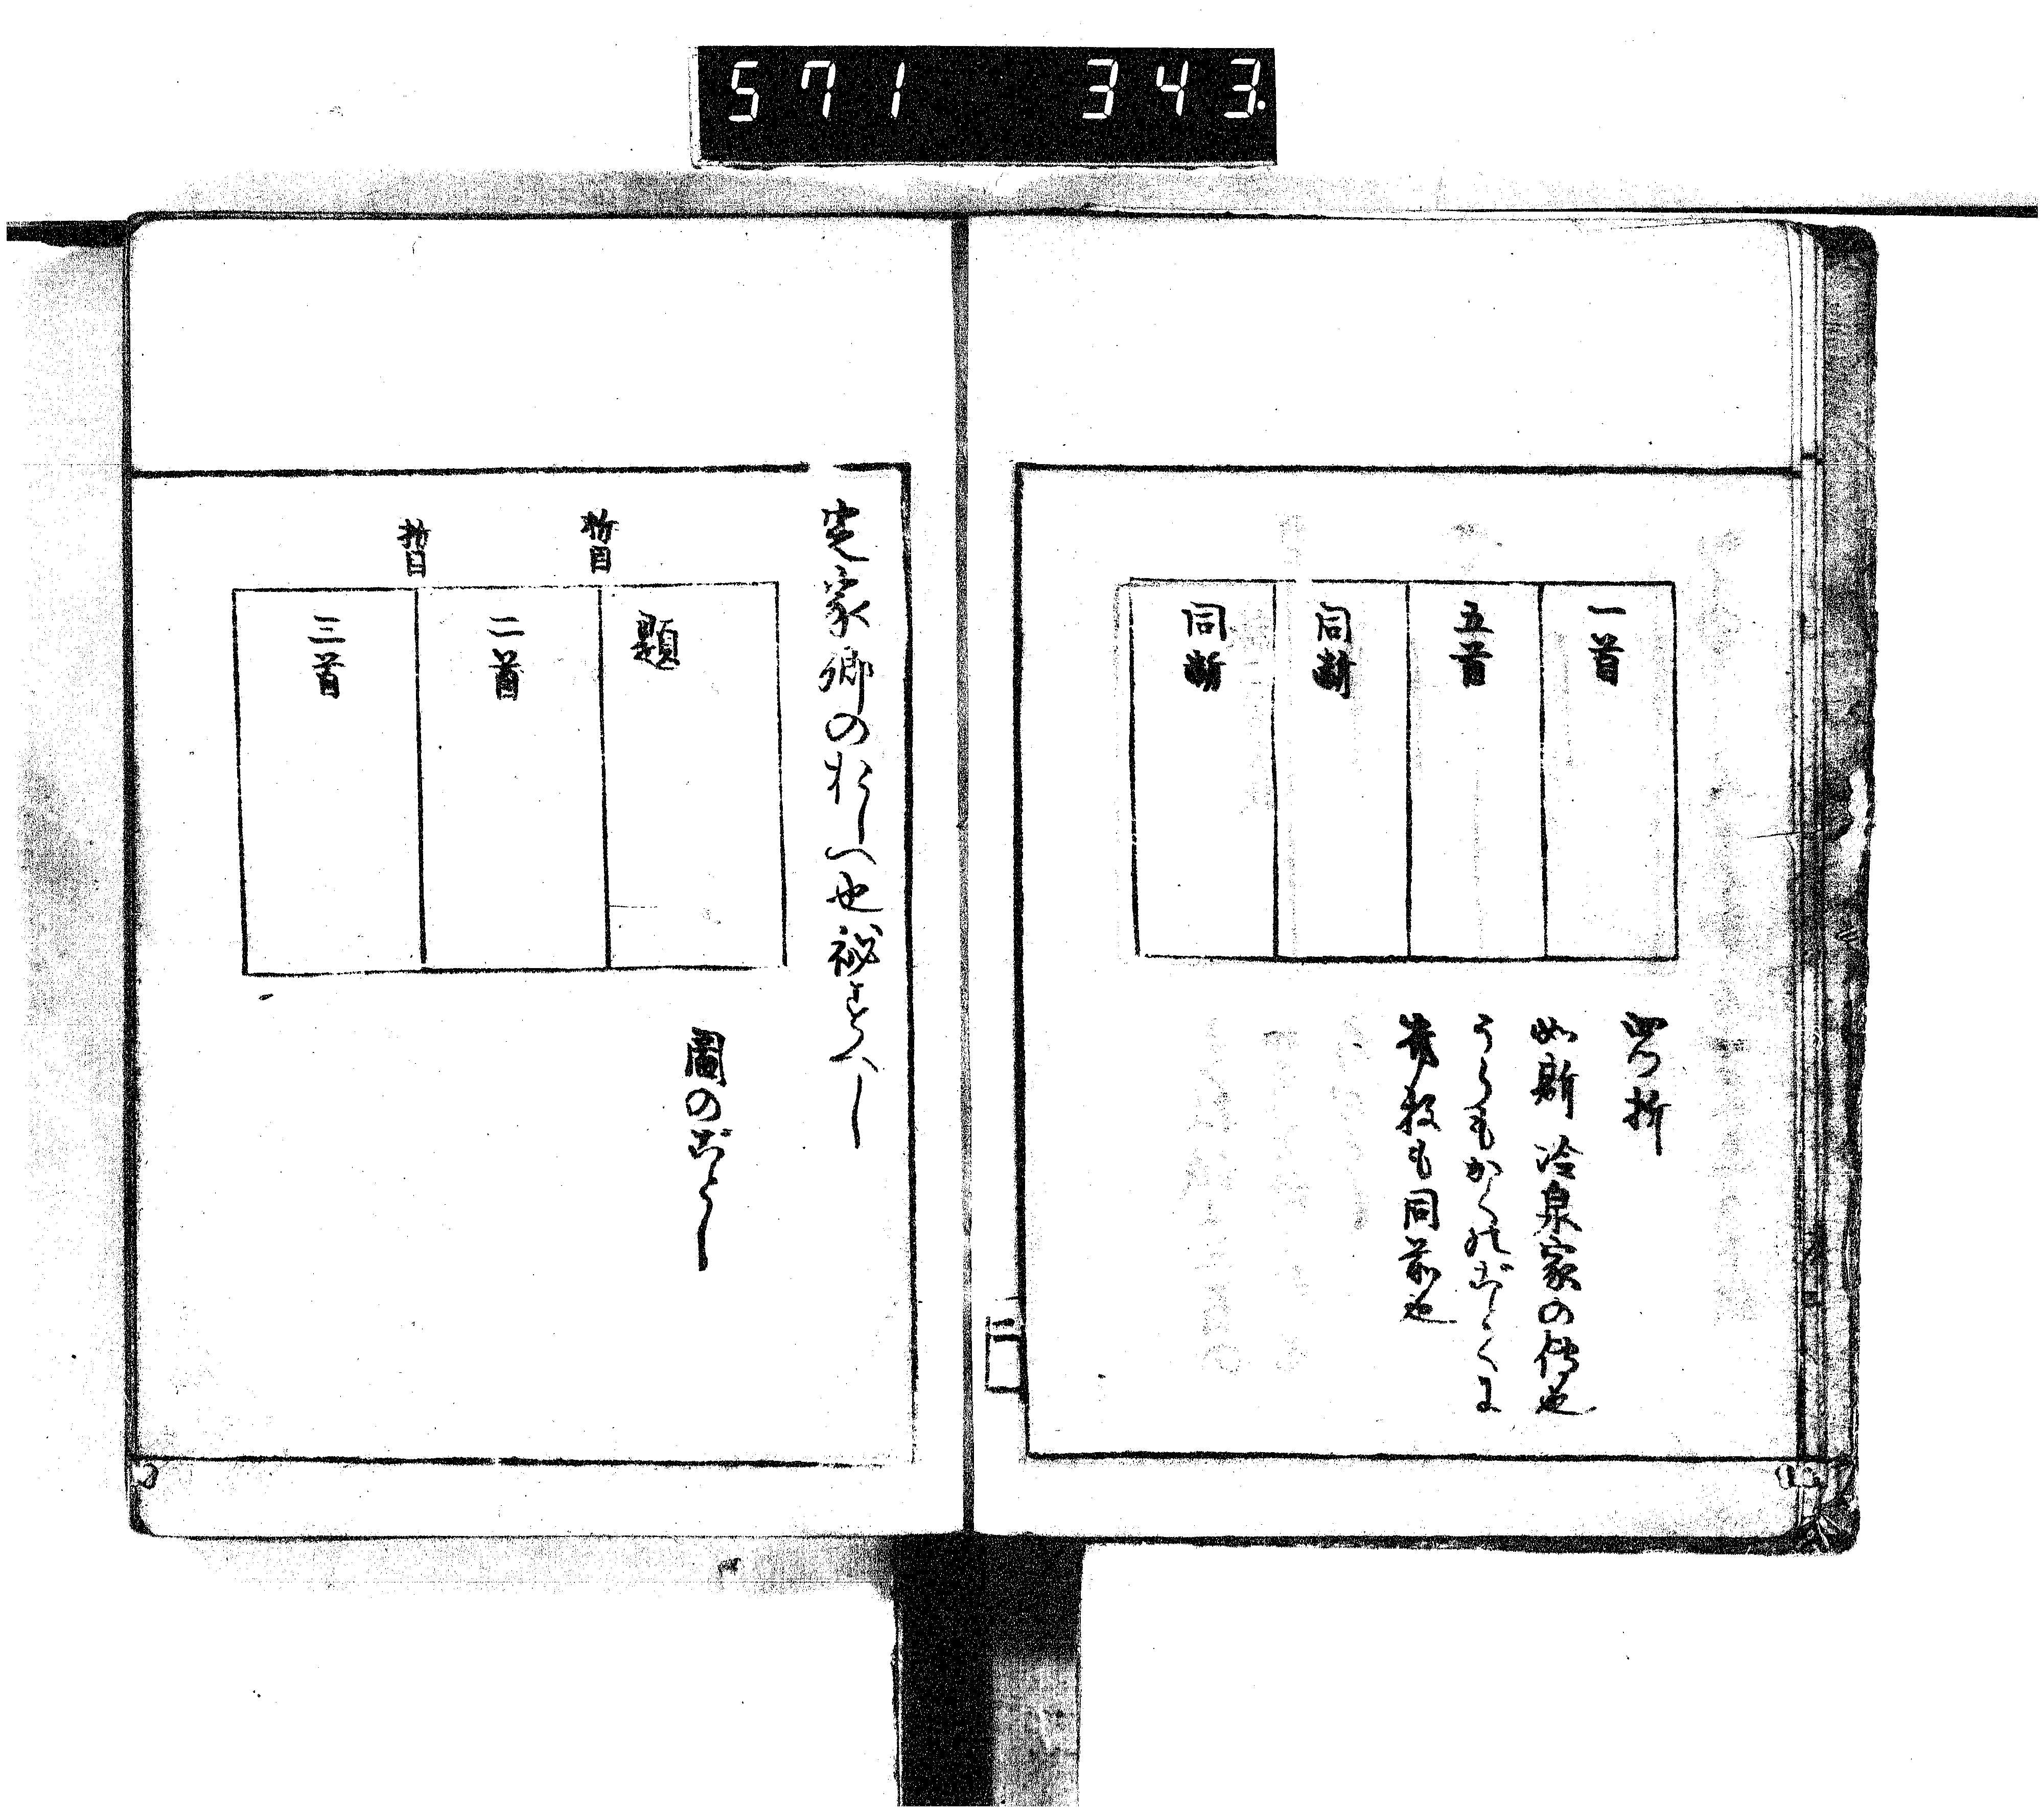 571 343.
一首
五首
同断
同断
四つ折
如斯冷泉家の傳也
うらもかくのごとくに
幾枚も同前也
定家卿のおしへ也秘すべし
折目
折目
題
二首
三首
圖のごとし